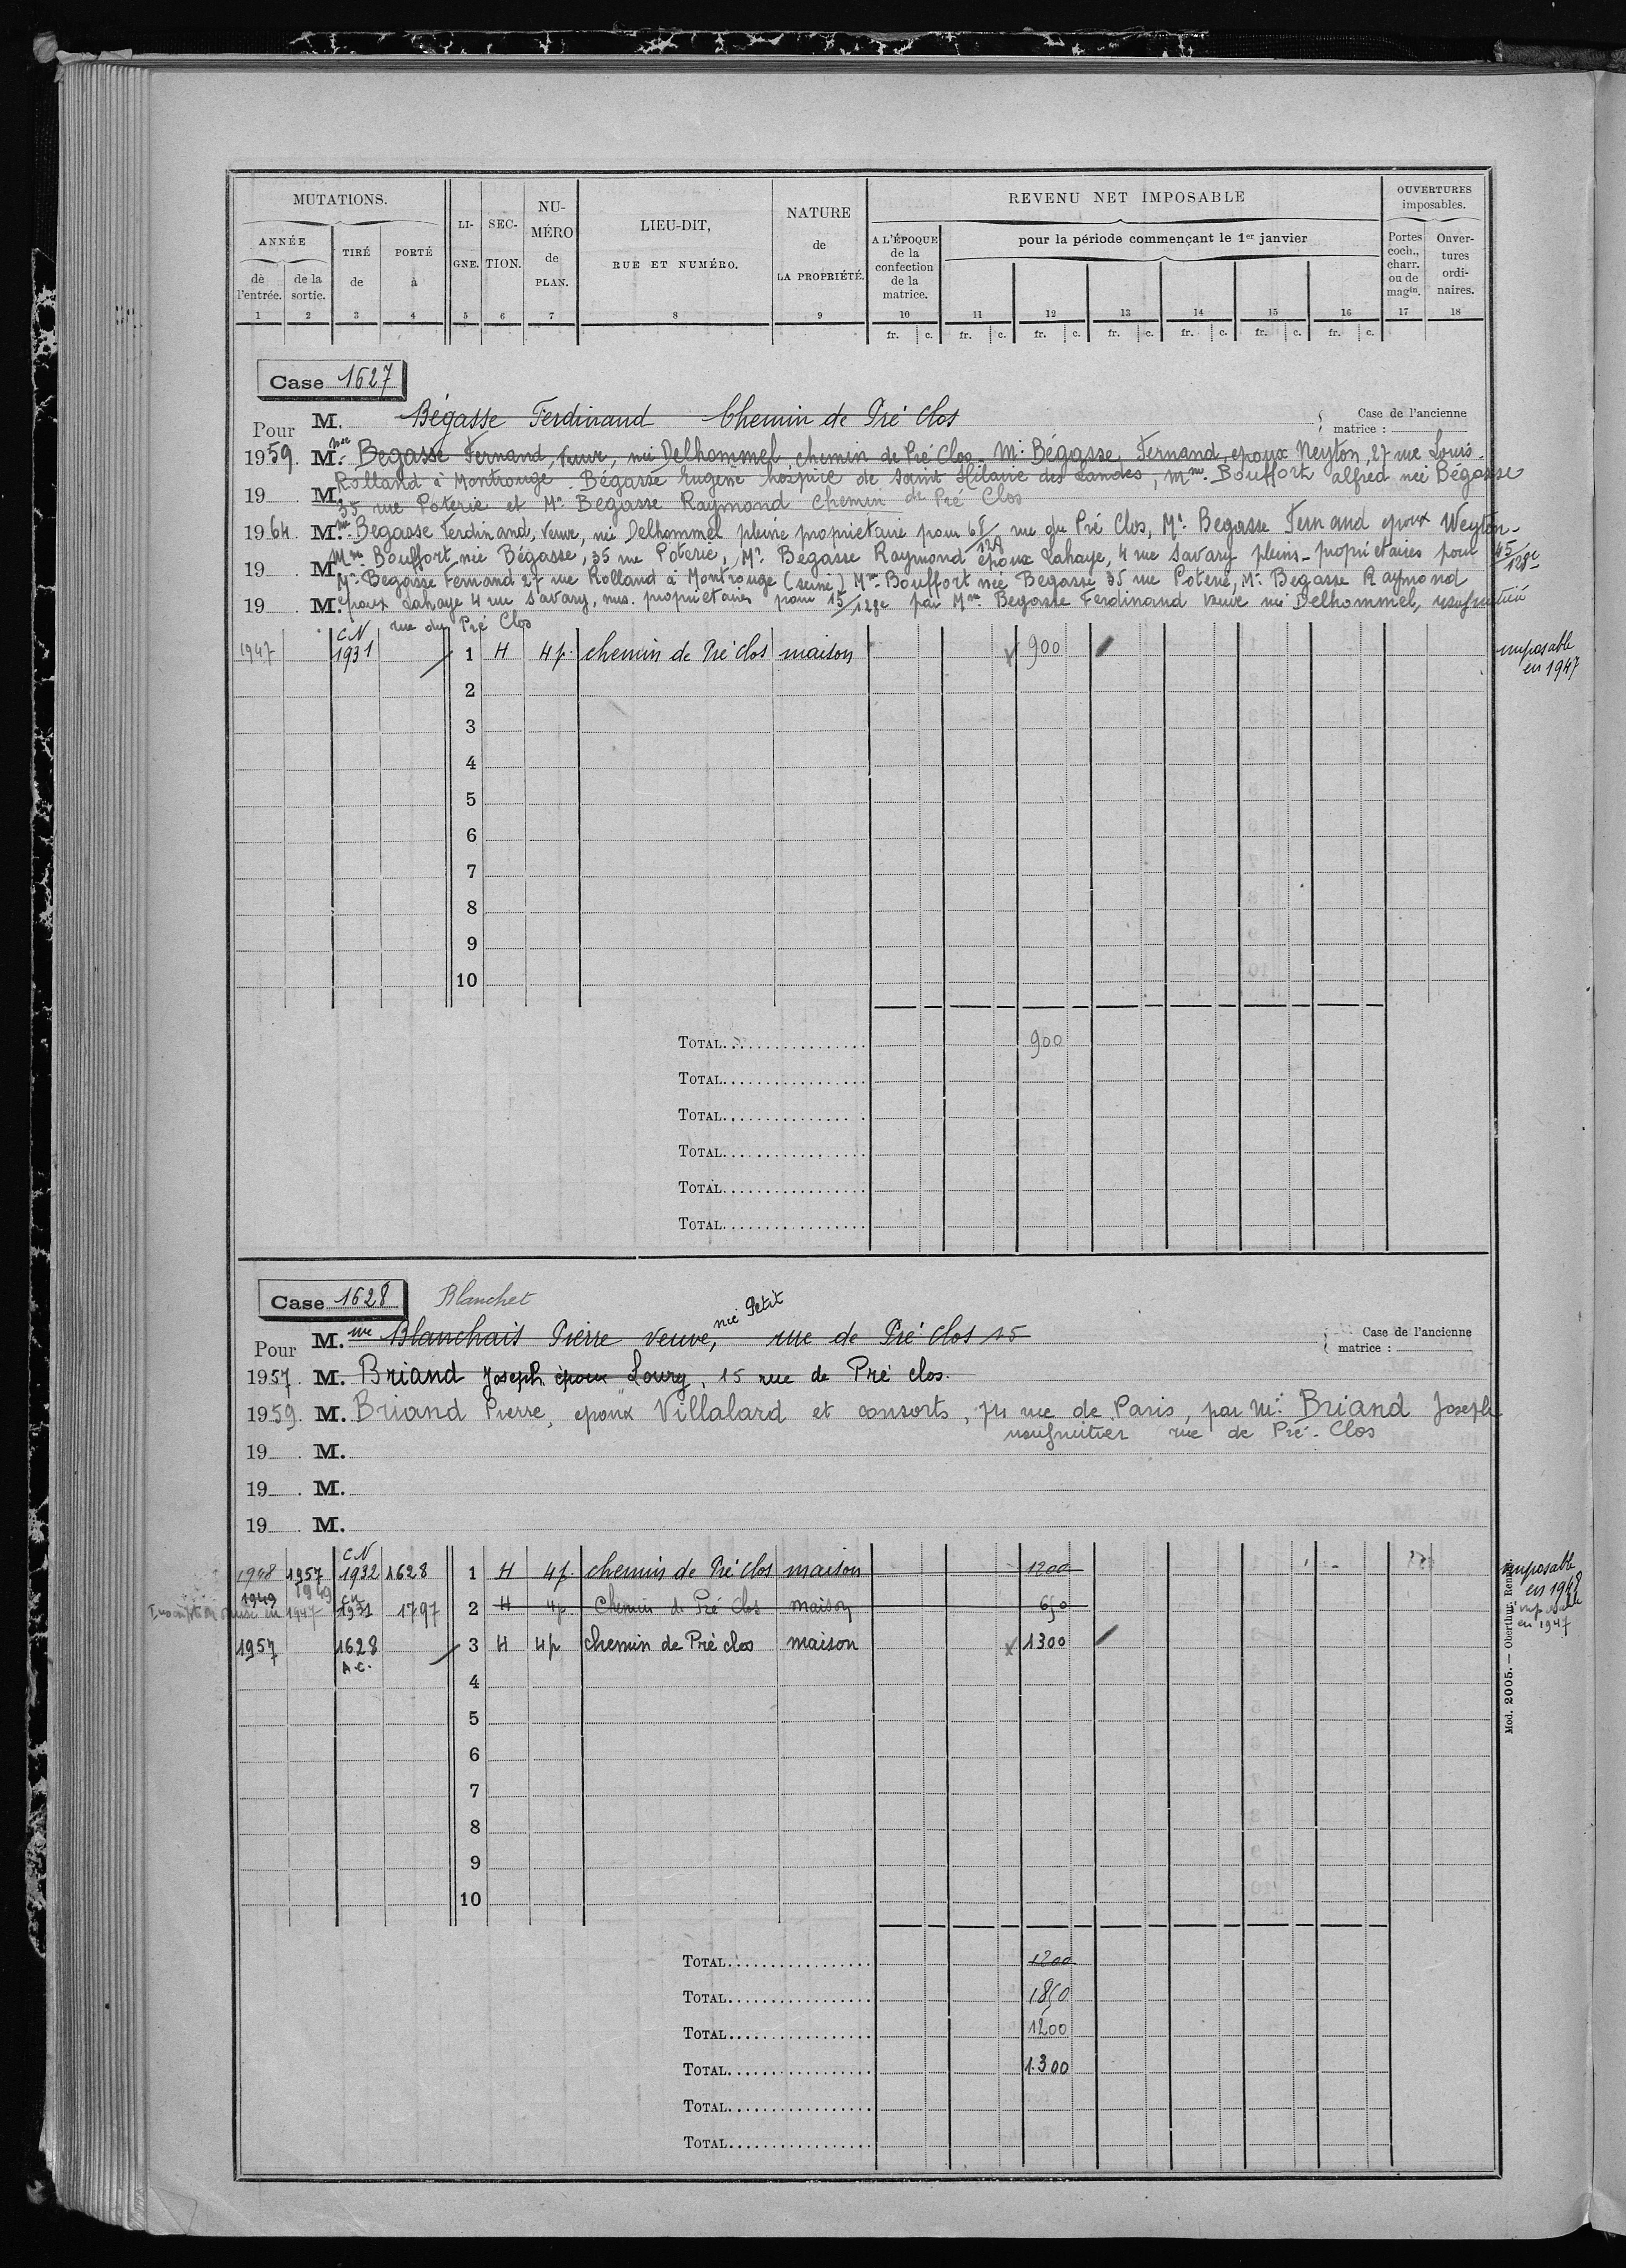 MUTATIONS.
ANNÉE
de l'entrée.
de la sortie.
TIRÉ de
PORTÉ à
LI-GNE.
SEC-TION.
NU-MÉRO de PLAN.
LIEU-DIT, RUE ET NUMÉRO.
NATURE de LA PROPRIÉTÉ.
REVENU NET IMPOSABLE
A L'ÉPOQUE de la confection de la matrice.
pour la période commençant le 1er janvier
OUVERTURES imposables.
Portes coch., charr. ou de magin.
Ouver-tures ordi-naires.
1 2 3 4 5 6 7 8 9 10 11 12 13 14 15 16 17 18
fr. c. fr. c. fr. c. fr. c. fr. c. fr. c. fr. c.
Case 1627
Pour M. Bégasse Ferdinand Chemin de Pré Clos
Case de l'ancienne matrice :
1959. M. Begasse Fernand, veuve, née Delhommel, chemin de Pré Clos - Mr Bégasse, Fernand, epoux Neyton, 27 rue Louis
Rolland à Montrouge. Bégasse Eugène hospice de Saint Hilaire des Landes, Mme Bouffort alfred née Bégasse
19 M. 35 rue Poterie et Mr Begasse Raymond Chemin de Pré Clos
1964 Mme Begasse Ferdinand, veuve, née Delhommel pleine propriétaire pour 68/128 rue du Pré Clos, Mr. Begasse Fernand epoux Weyton-
19 M. Mme Bouffort née Bégasse, 35 rue Poterie, Mr Begasse Raymond époux Lahaye, 4 rue Savary pleins-propriétaires pour 45/128e
Mr Begasse Fernand 27 rue Rolland à Montrouge (seine) Mme Bouffort née Begasse 35 rue Poterie, Mr. Begasse Raymond
19 M. epoux Lahaye 4 rue Savary, nus. propriétaires pour 15/128e par Mme Begasse Ferdinand veuve née Delhommel, usufruitière
rue du Pré Clos
1947 CN 1931 1 H 4p. chemin de Pré Clos maison 900 imposable en 1947
2
3
4
5
6
7
8
9
10
TOTAL 900
TOTAL
TOTAL
TOTAL
TOTAL
TOTAL
Case 1628 Blanchet
née Petit
Pour M. Vve Blanchais Pierre veuve, rue de Pré clos 15
Case de l'ancienne matrice :
1957. M. Briand Joseph époux Loury, 15 rue de Pré clos.
1959. M. Briand Pierre, epoux Villalard et consorts, 74 rue de Paris, par Mr. Briand Joseph
usufruitier rue de Pré-Clos
19 M.
19 M.
19 M.
1948 1957 CN 1932 1628 1 H 4p. chemin de Pré Clos maison 1200 imposable en 1948
1949 1949 CN 1931 1797 2 H 4p. Chemin de Pré Clos maison 650 imposable en 1947
en 1947
1957 1628 A.C. 3 H 4p chemin de Pré clos maison 1300
4
5
6
7
8
9
10
TOTAL 1200
TOTAL 1850
TOTAL 1200
TOTAL 1.300
TOTAL
TOTAL
Mod. 2005. — Oberthur, Rennes